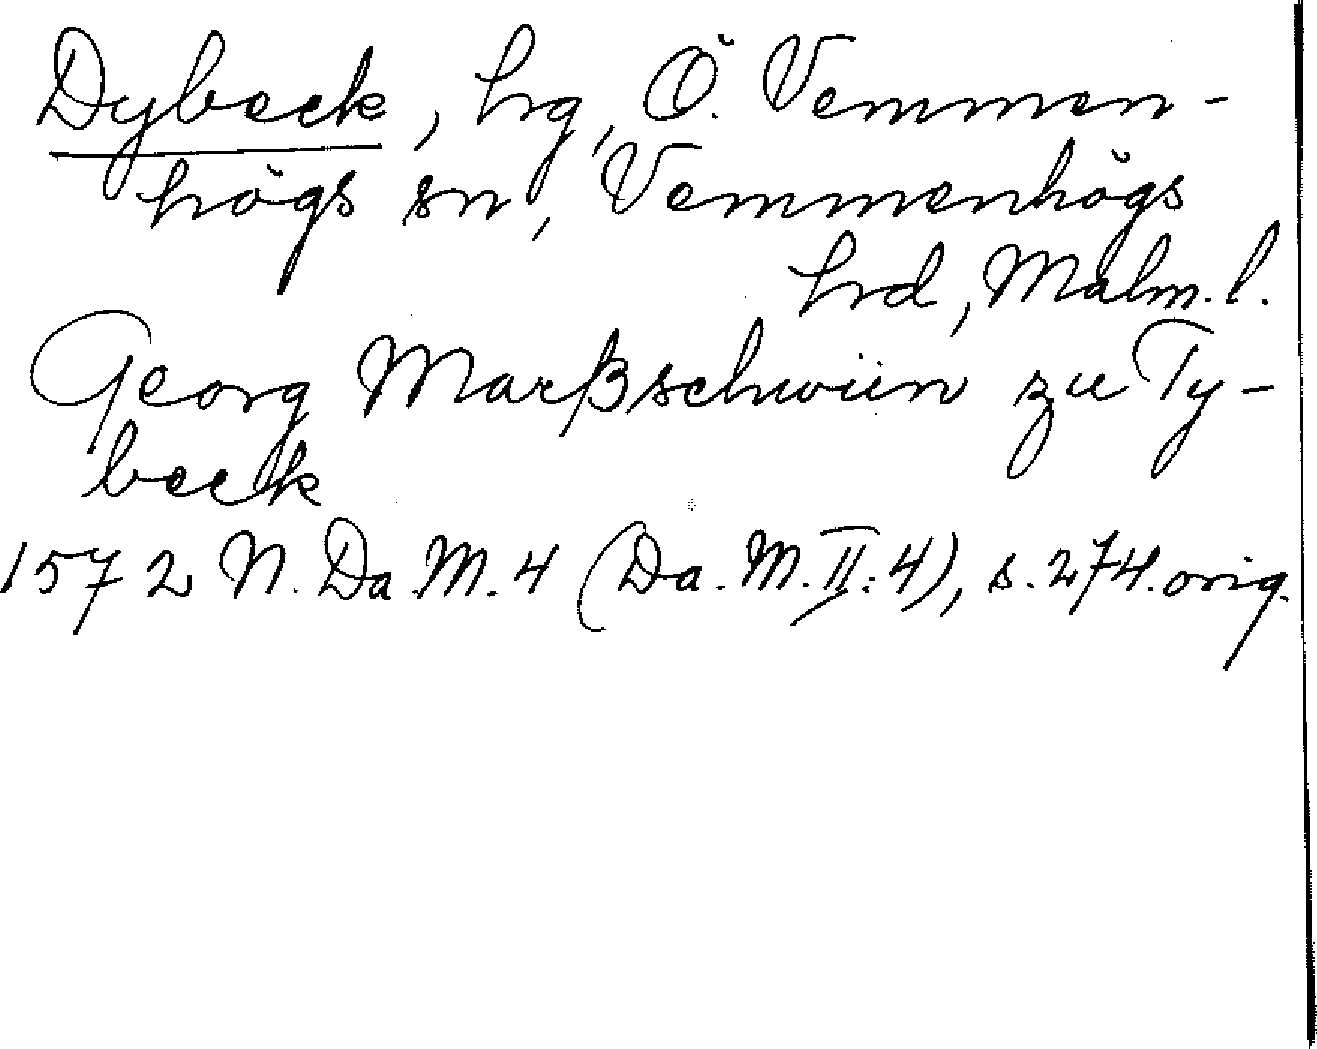 Dybeck, hg, Ö. Vemmen-
högs sn, Vemmenhögs
hrd, Malm. l.
Georg Marßschwün zu Ty-
beck
1572 N. Da. M. 4 (Da. M. II: 4), s. 274. orig.